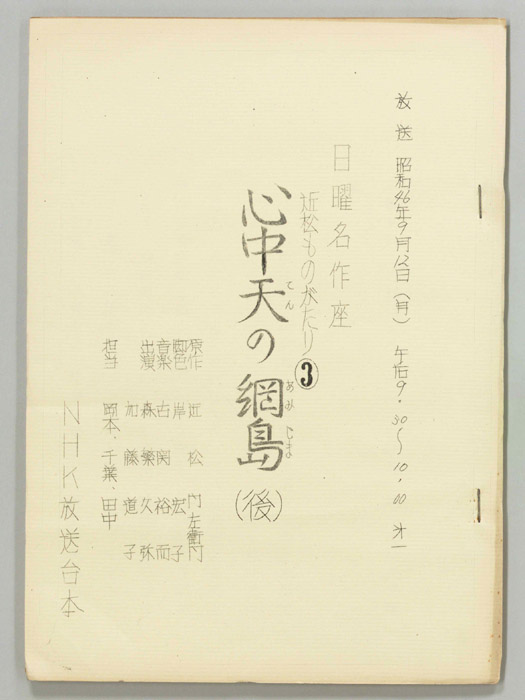 放送 昭和46年9月12日(月) 午后9.30〜10.00 才一
日曜名作座
近松ものがたり③
心中天の網島(後)
てん あみじま
原作 近松門左衛門
脚色 岸宏子
音楽 古関裕而
出演 森繁久弥
加藤道子
担当 岡本、千葉、田中
NHK放送台本